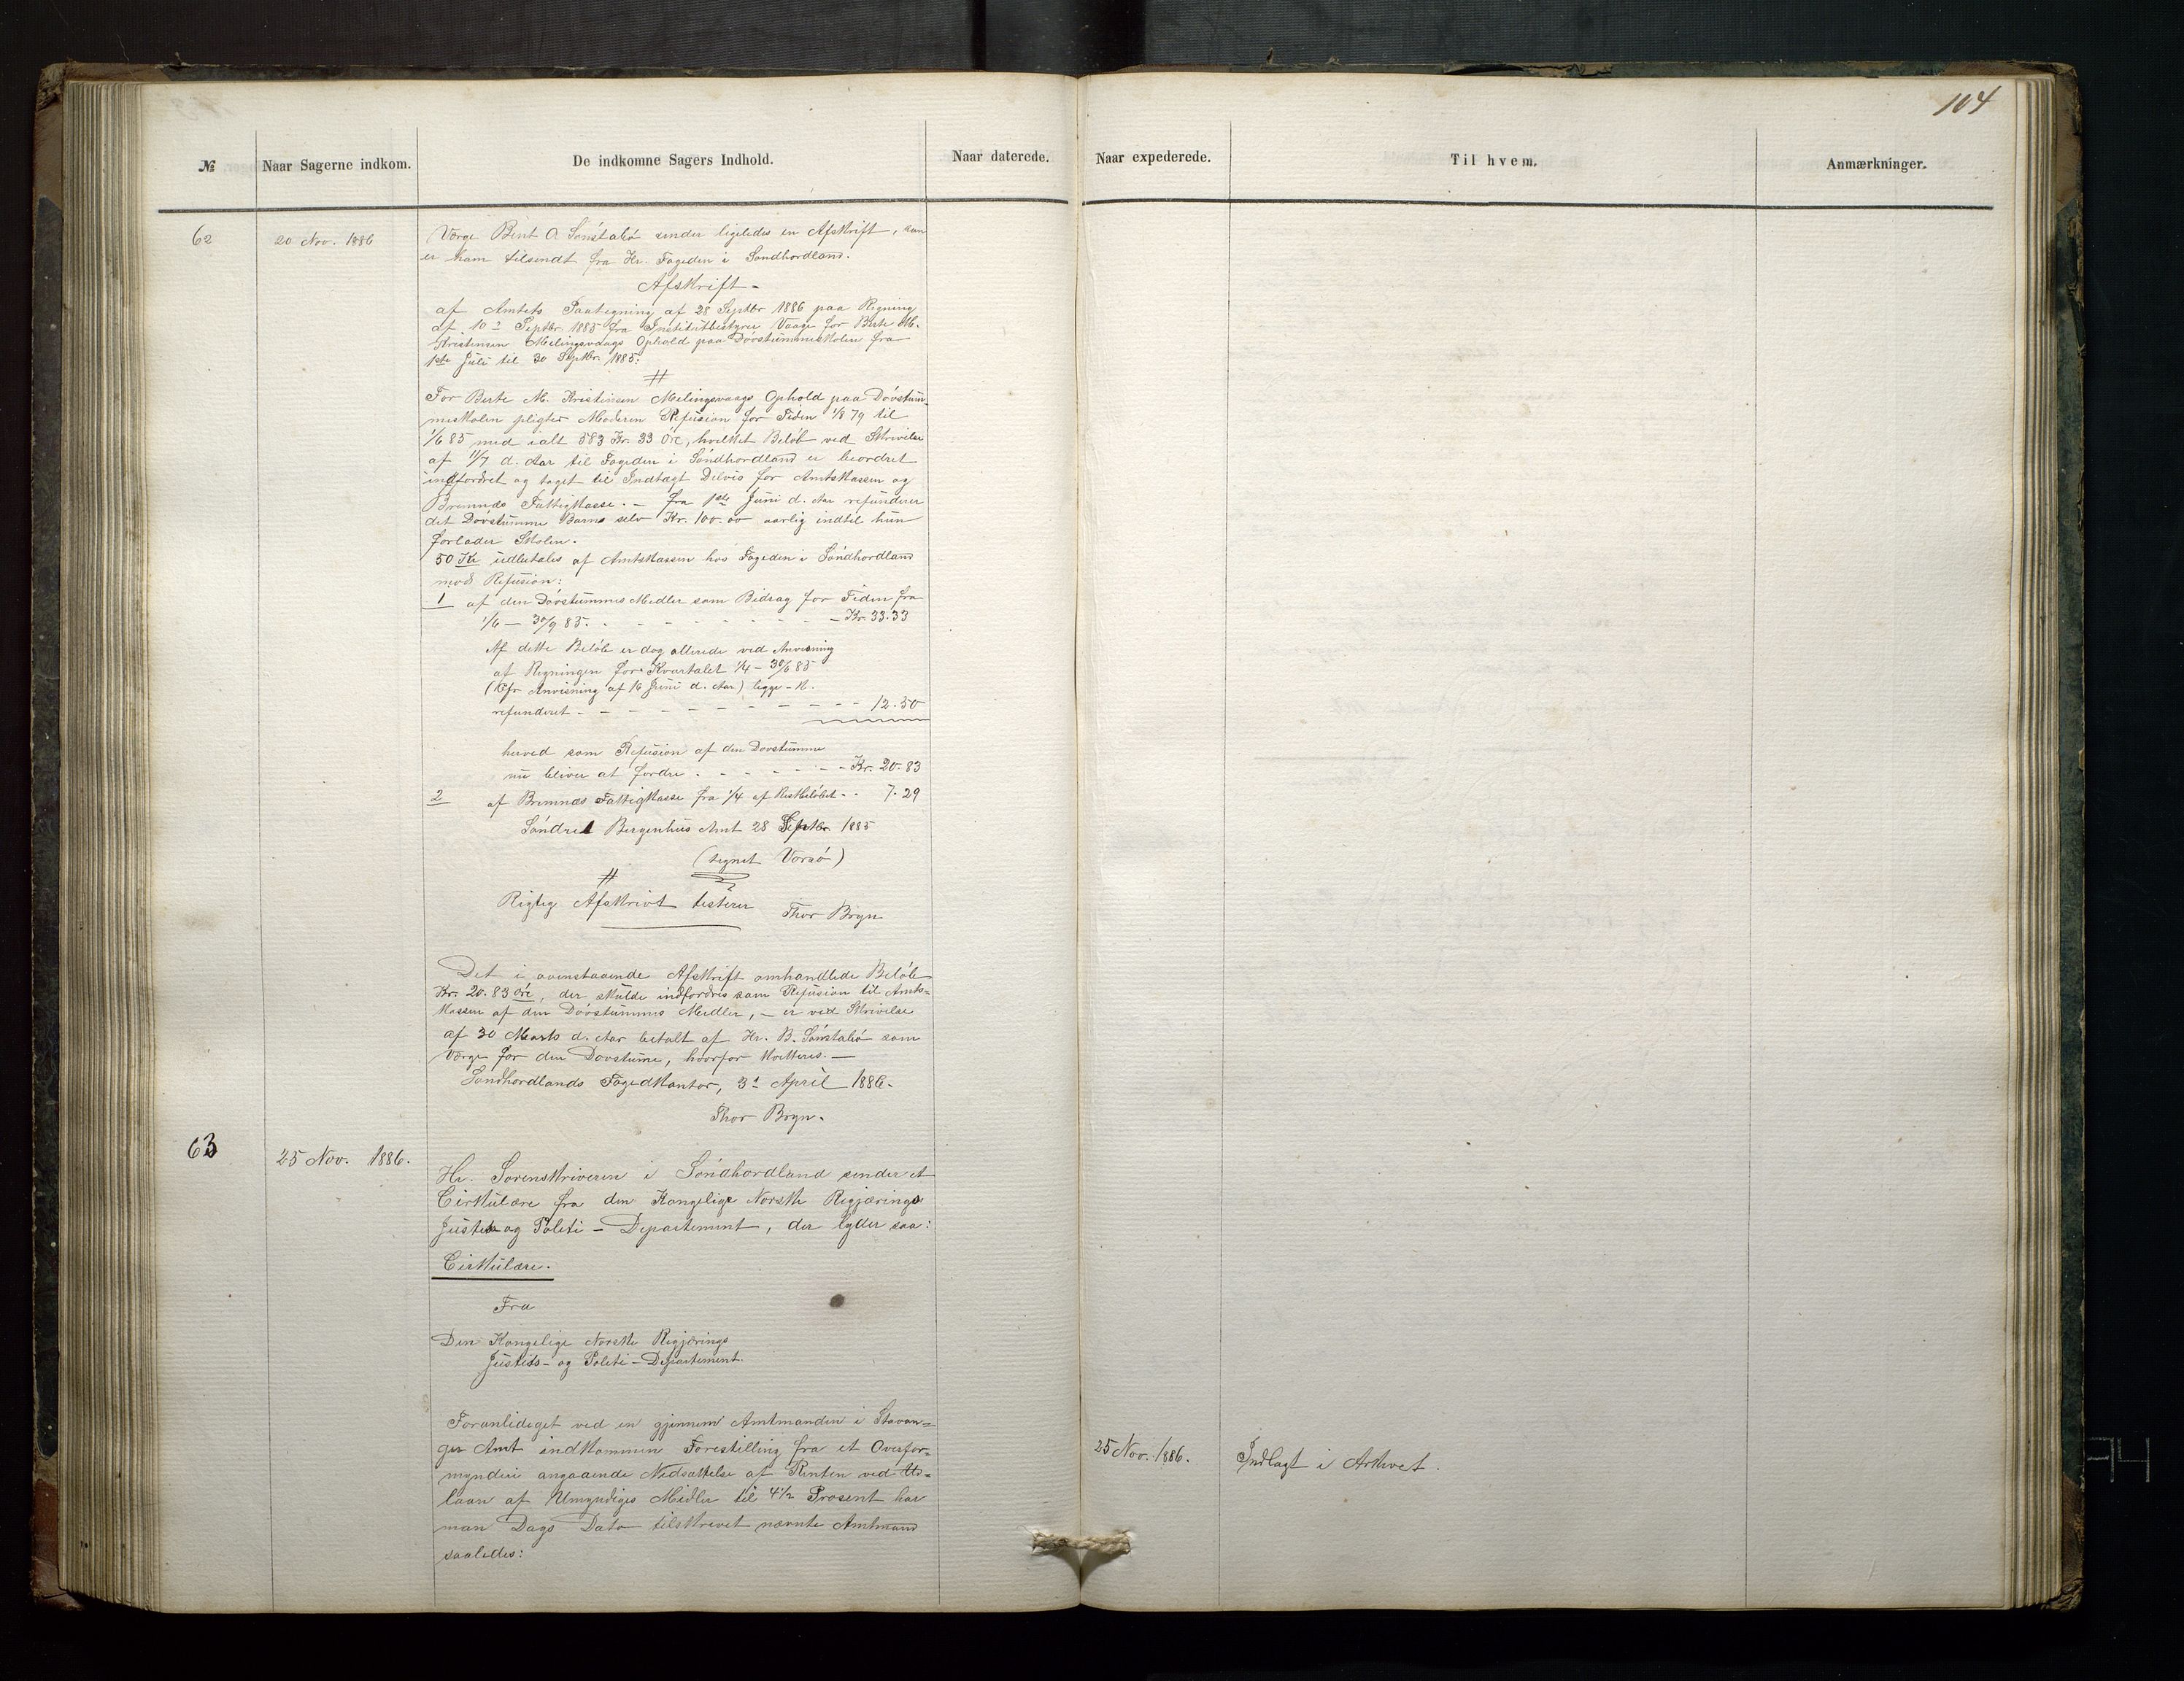 104
№ Naar Sagerne indkom. De indkomne Sagers Indhold. Naar daterede. Naar expederede. Til hvem. Anmærkninger.
62 20 Nov. 1886 Værge Bent A Sønstabø sender ligeledes en Afskrift, som
er ham tilsendt fra Hr. Fogeden i Søndhordland.
Afskrift -
af Amtets Paategning af 28 Septbr 1886 paa Regning
af 10 Septbr 1885 fra Institutbestyrer Vaage for Berte M.
Kristensen Melingsvaags Ophold paa Dövstummeskolen fra
1ste Juli til 30 Septbr. 1885:
#
For Berte M. Kristensen Melingsvaags Ophold paa Dövstum-
meskolen pligter Moderen Refusion for Tiden 1/8 79 til
1/6 85 med ialt 583 Kr. 33 Öre, hvilket Belöb ved Skrivelse
af 11/7 d. Aar til Fogeden i Söndhordland er beordret
indfordret og taget til Indtægt Delvis for Amtskassen og
Bremnæs Fattigkasse. - fra 1ste Juni d. Aar refunderer
det Dövstumme Barns selv Kr. 100.00 aarlig indtil hun
forlader Skolen.
50 Kr udbetales af Amtskassen hos Fogeden i Söndhordland
mod Refusion:
1 af den Dövstummes Medler som Bidrag for Tiden fra
1/6 — 30/9 85. - - - - - - - - Kr. 33.33
Af dette Belöb er dog allerede ved Anvisning
af Regningen for Kvartalet 1/4 - 30/6 85
(Cfr Anvisning af 16 Juni d. Aar)
refunderet - - - - - - - - - 12.50
herved som Refusion af den Dovstumme
nu bliver at fordre - - - - - Kr. 20.83
2 af Bremnæs Fattigkasse fra 1/4 af Restbelöbet - - 7.29
Söndre Bergenhus Amt 28 Septbr. 1885
(signet Vorsö)
#
Rigtig Afskrivt testerer Thor Bryn
Det i ovenstaaende Afskrift omhandlede Belöb
Kr. 20.83 Öre, der skulde indfordres som Refusion til Amts-
kassen af den Dövstummes Medler, — er ved Skrivelse
af 30 Marts d. Aar betalt af Hr. B. Sönstabö som
Værge for den Dovstume, hvorfor kvitteres. —
Søndhordlands Fogedkontor, 3 April 1886.
Thor Bryn.
63 25 Nov. 1886. Hr. Sorenskriveren i Söndhordland sender et
Cirkulære fra den Kongelige Norske Regjærings
Justits og Politi - Departement, der lyder saa:
Cirkulære.
Fra
Den Kongelige Norske Regjærings
Justits- og Politi - Departement.
Foranlediget ved en gjennem Amtmanden i Stavan-
ger Amt indkommen Forestilling fra et Overfor-
mynderi angaaende Nedsættelse af Renten ved Ud-
laan af Umyndiges Midler til 4 1/2 Prosent har
man Dags Dato tilskrevet nævnte Amtmand
saaledes:
25 Nov. 1886. Indlagt i Arkivet.